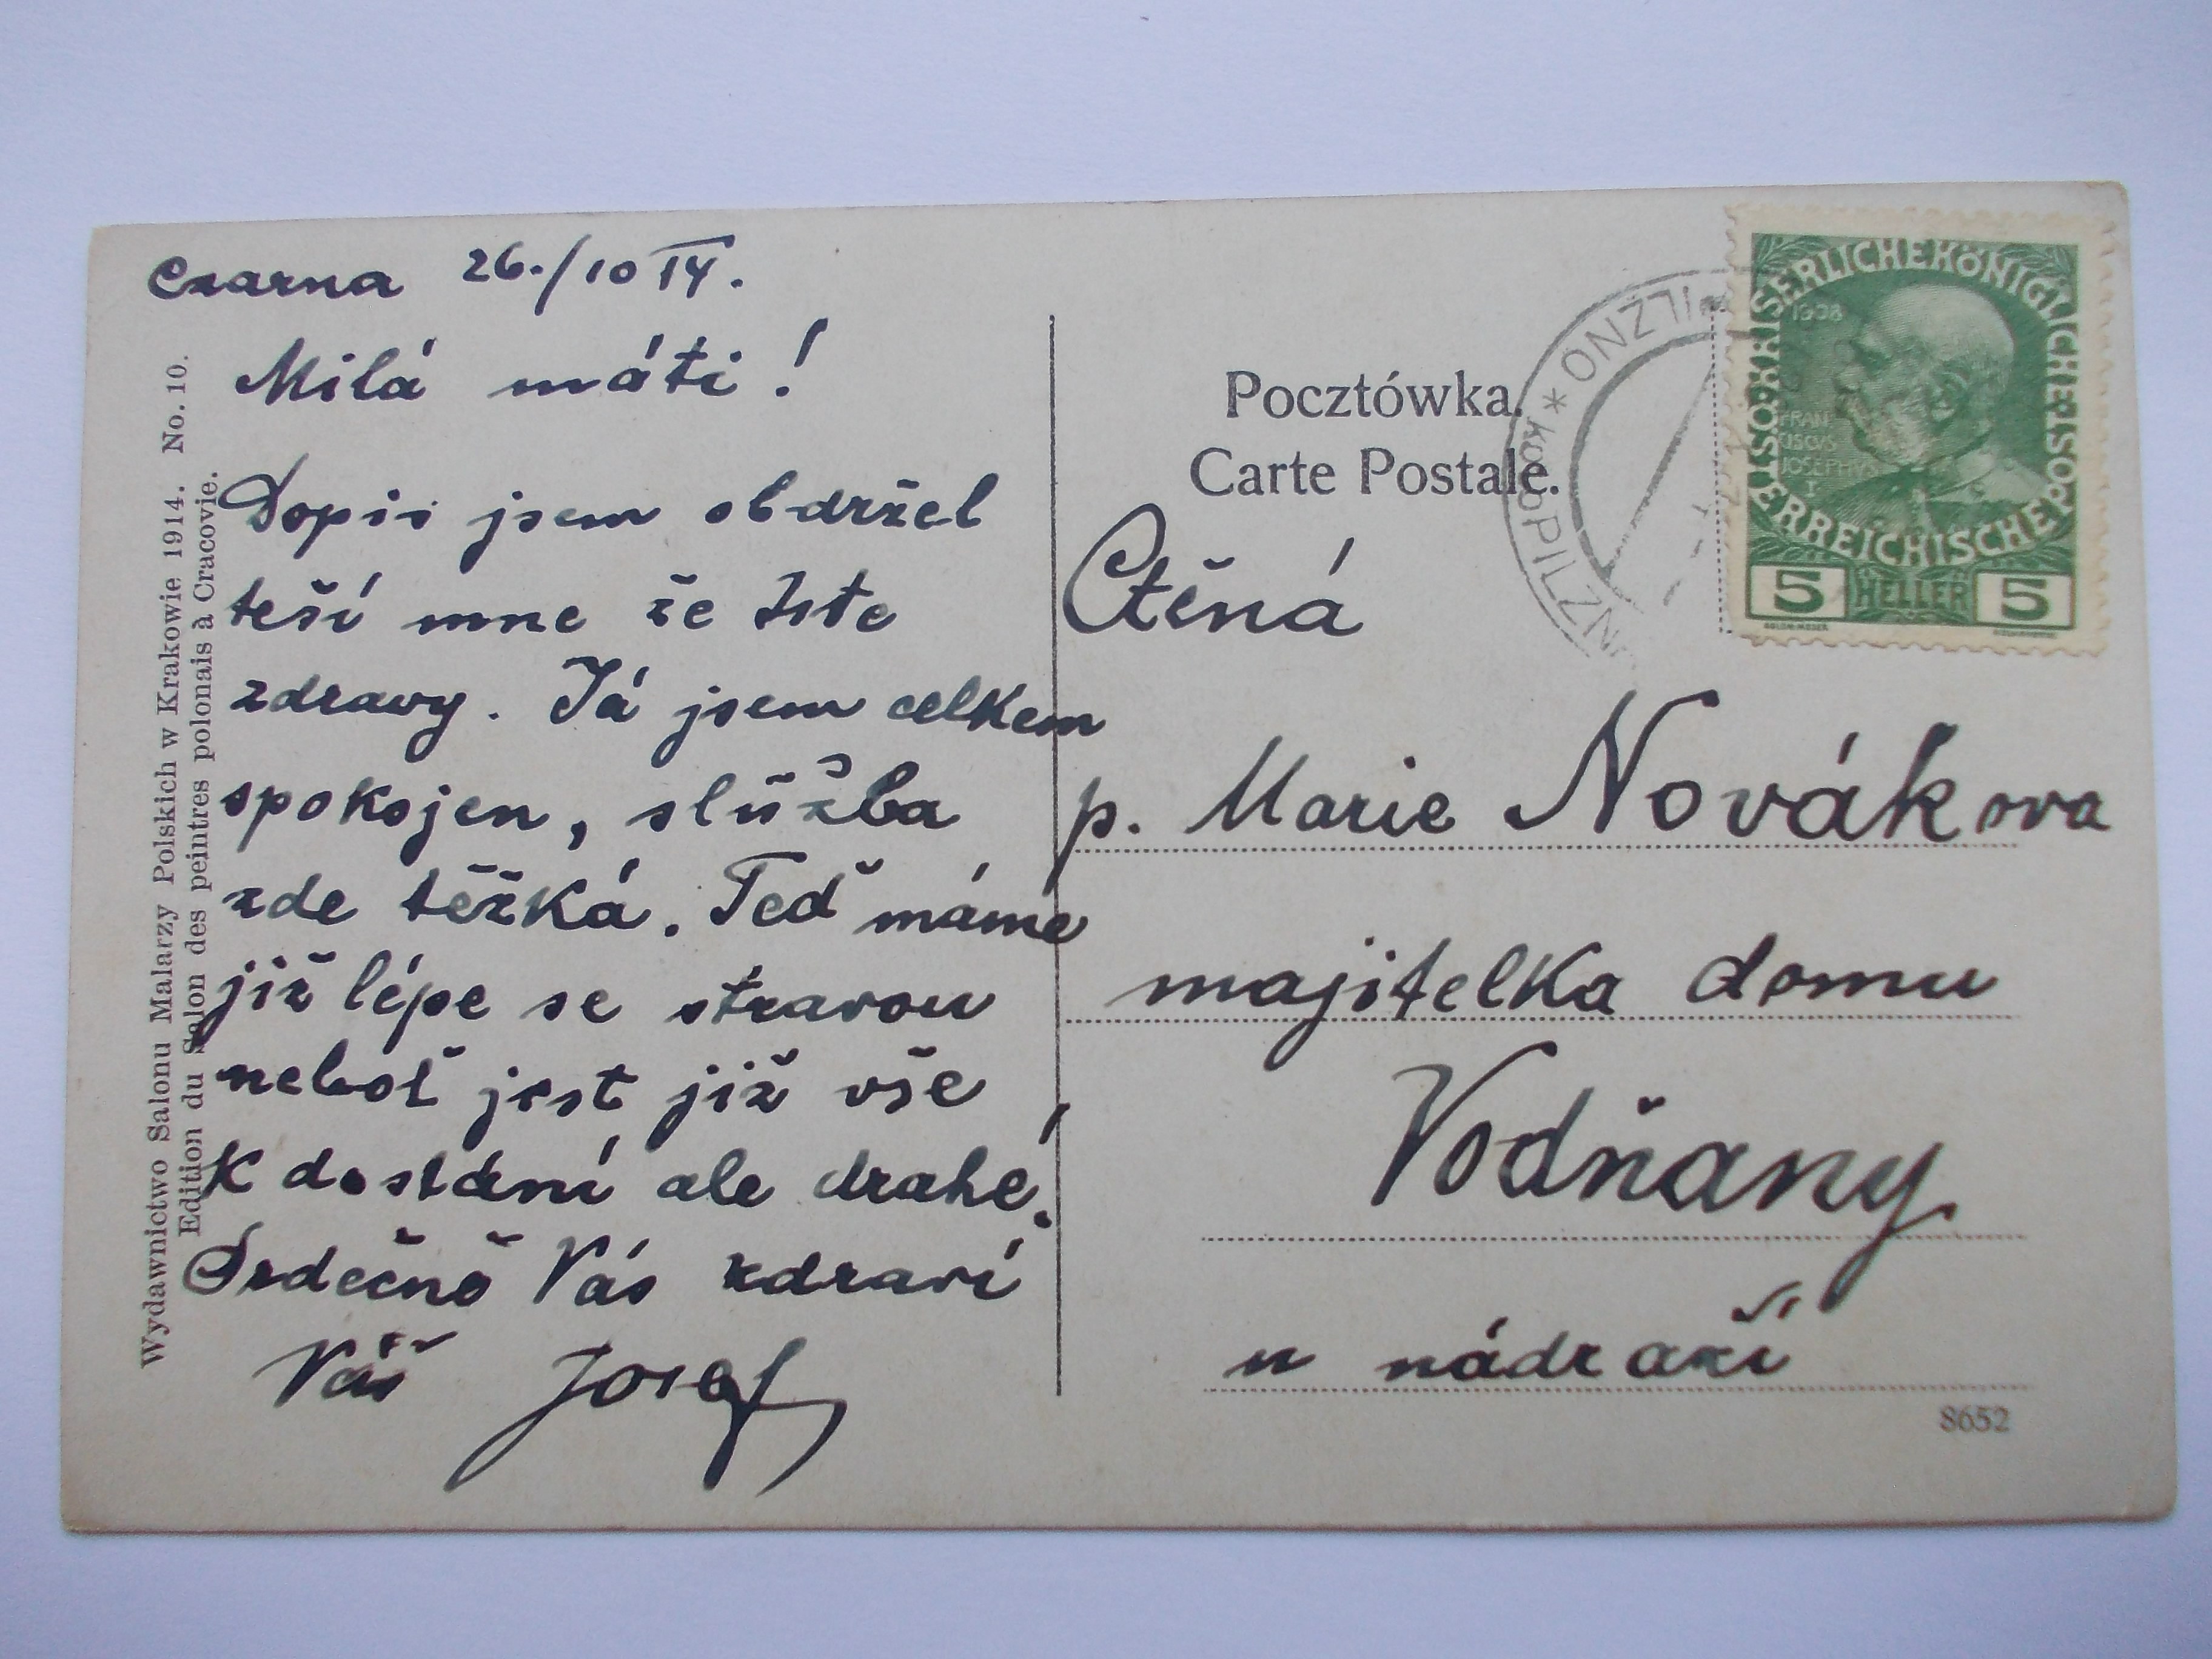 Czarna 26./10 14.
Milá máti!
Dopis jsem obdržel
teší mne že jste
zdravy. Já jsem celkem
spokojen, slůžba
zde těžká. Teď máme
již lépe se stravou
neboť jest již vše
k dostání ale drahé.
Srdečně Vás zdraví
Váš Josef
Wydawnictwo Salonu Malarzy Polskich w Krakowie 1914. No. 10.
Edition du Salon des peintres polonais à Cracovie.
Pocztówka.
Carte Postale.
Ctěná
p. Marie Novákova
majitelka domu
Vodňany
u nádraží
8652
KAISERLICHE KÖNIGLICHE ÖSTERREICHISCHE POST
1908
FRAN
CISCVS
JOSEPHVS
I
5 HELLER 5
PILZNO *